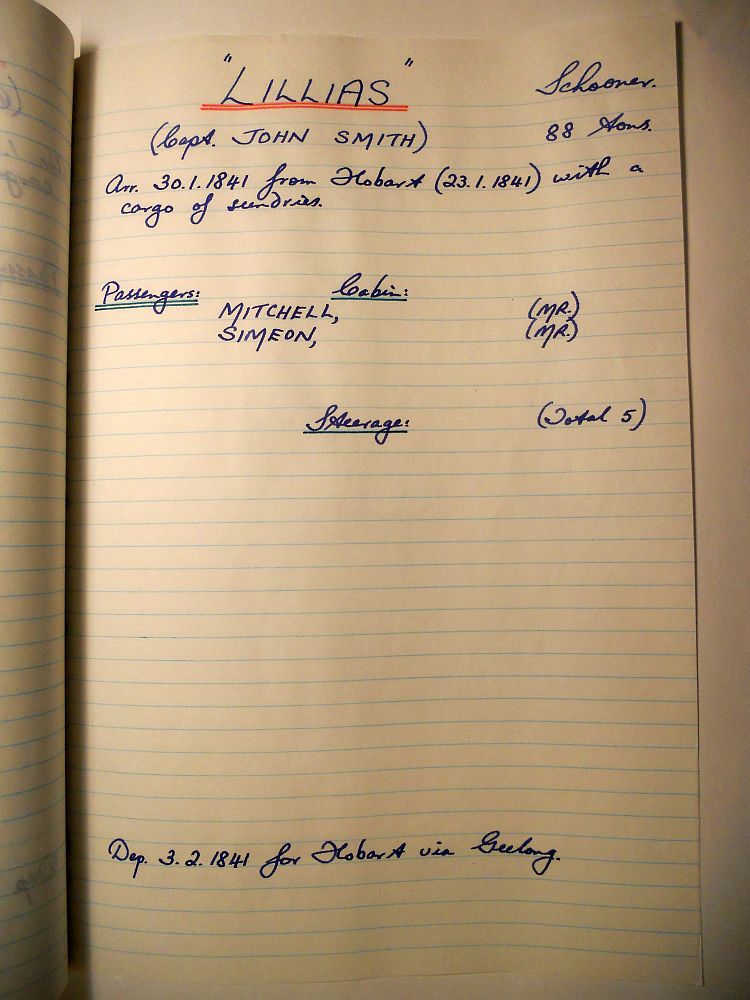 "LILLIAS" Schooner.
(Capt. JOHN SMITH) 88 tons.
Arr. 30.1.1841 from Hobart (23.1.1841) with a
cargo of sundries.
Passengers: Cabin:
MITCHELL, (MR.)
SIMEON, (MR.)
Steerage: (Total 5)
Dep. 3.2.1841 for Hobart via Geelong.